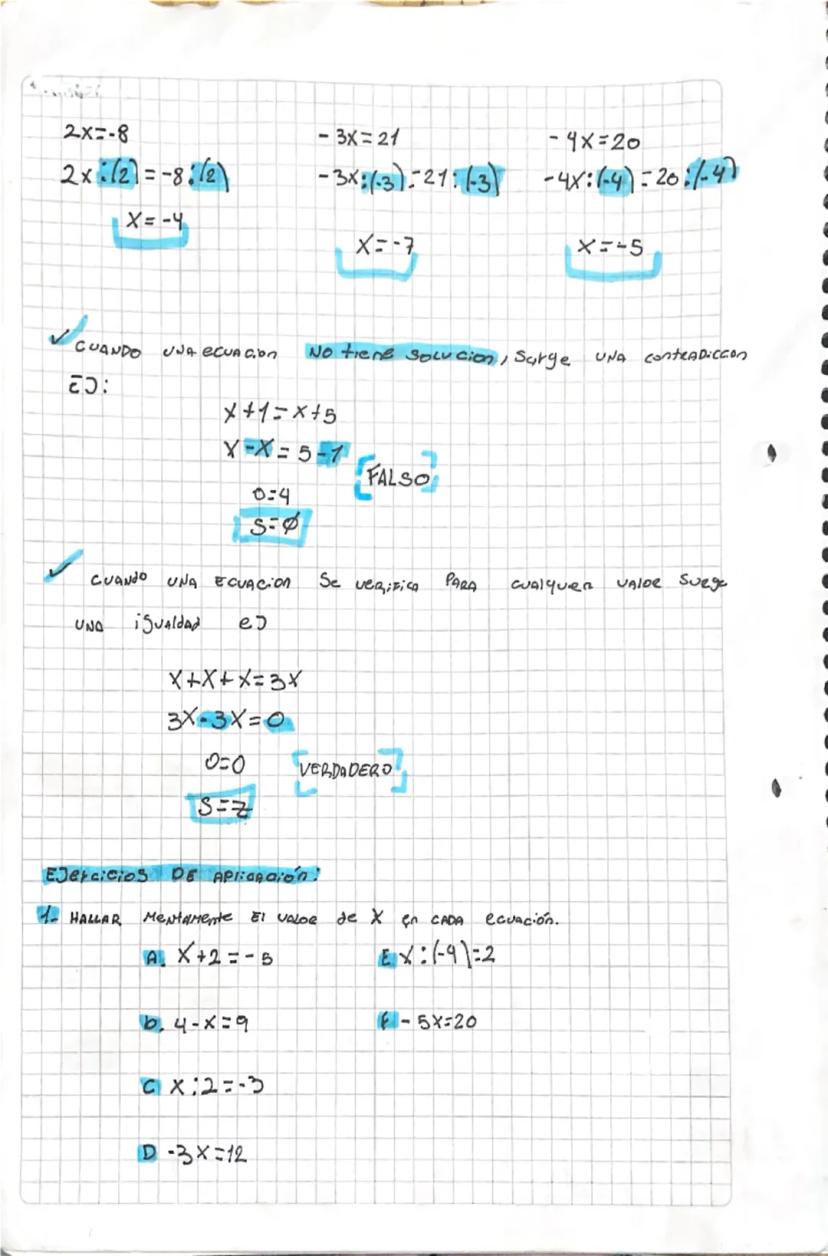 2x=-8
2x:(2)=-8:(2)
x=-4
-3x=21
-3x:(-3)=21:(-3)
x=-7
-4x=20
-4x:(-4)=20:(-4)
x=-5
✓ CUANDO UNA ecuACion NO tiene SOLUCION, Surge UNA contRADICCON
EJ:
x+1=x+5
x-x=5-1
0=4
[FALSO]
S=∅
✓ CUANDO UNA ECUACION Se veriFica PARA CUALquier VALOR Surge
UNA iguALDAD eJ
x+x+x=3x
3x-3x=0
0=0
[VERDADERO]
S=Z
EJercicios DE APlicAción:
1- HALLAR MentAmente El VALOR de X en CADA ecuación.
A. x+2=-5
b. 4-x=9
C x:2=-3
D -3x=12
E x:(-4)=2
F -5x=20